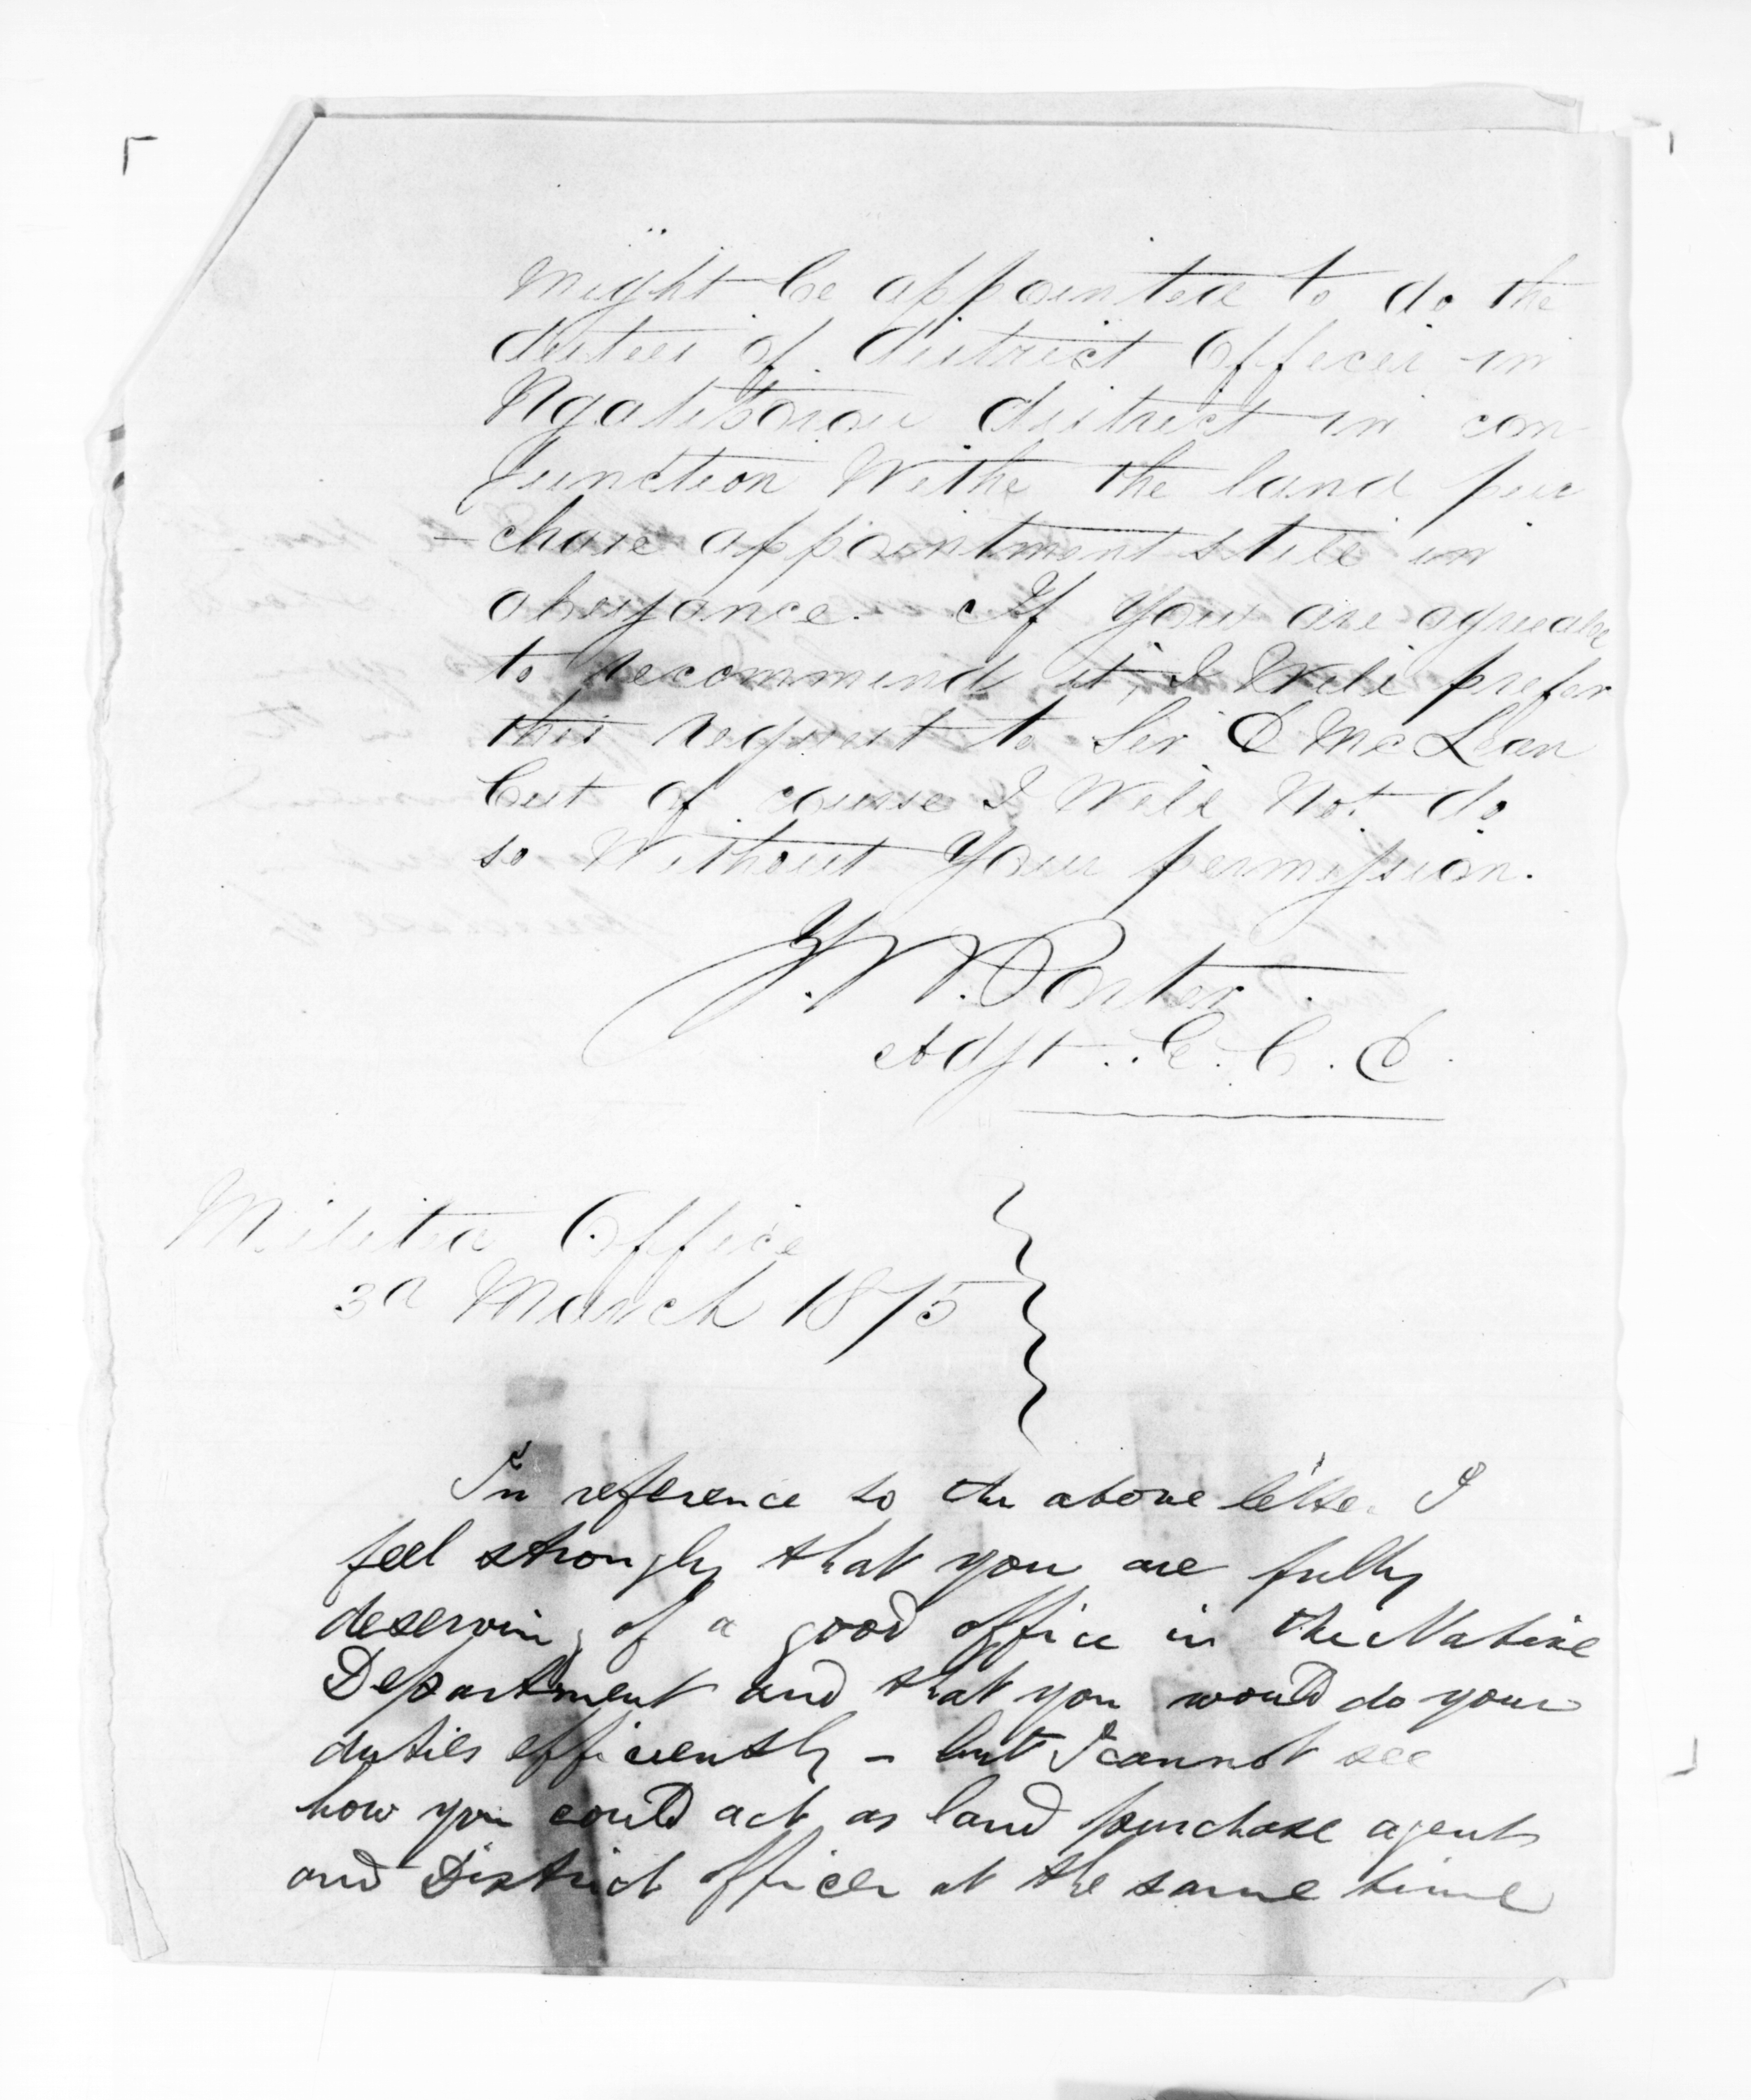 might be appointed to do the
duties of district Officer in
NgatiPorou district in con-
junction Withe the land pur
-chase appointment still in
abeyance. If you are agreeable
to recommend it, I Will prefer
this request to Sir D McLean
but of course I Will Not do
so Without your permission.
T. W. Porter.
Adjt. E. C. D.
Militia Office
3d March 1875
In reference to the above letter I
feel strongly that you are fully
deserving of a good office in the Native
Department and that you would do your
duties efficiently – but I cannot see
how you could act as land purchase agent
and District officer at the same time